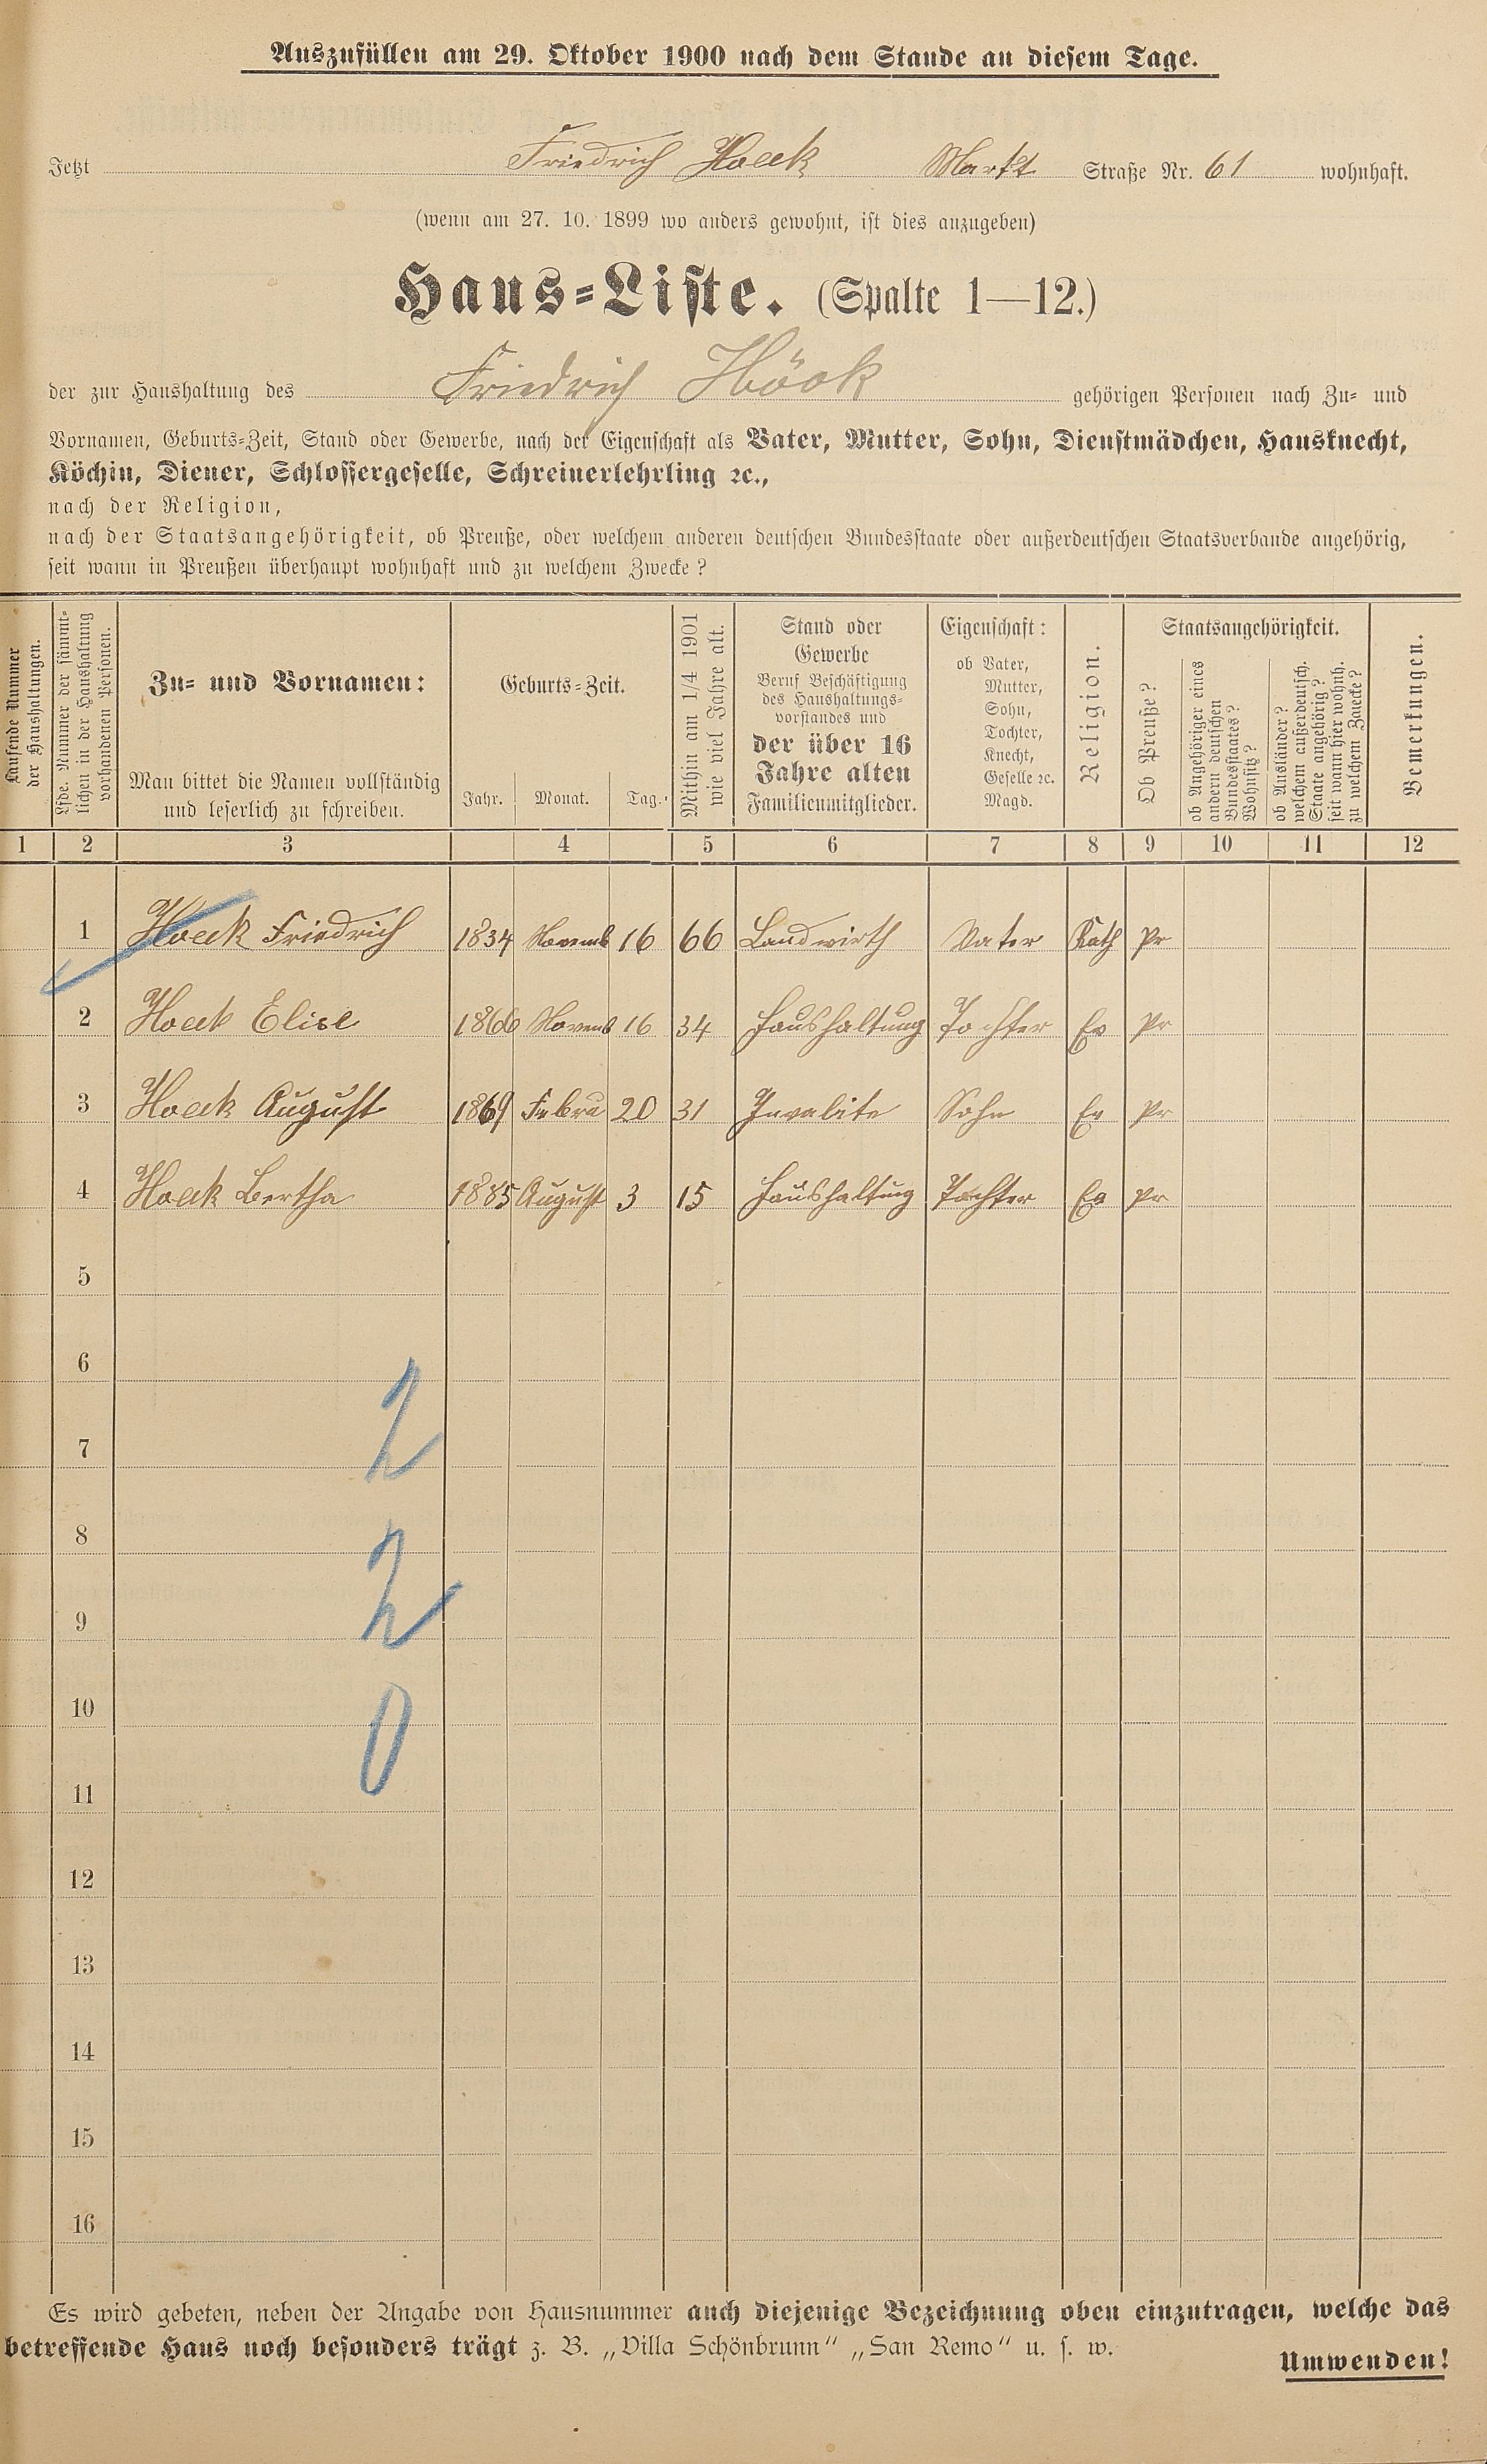 Auszufüllen am 29. Oktober 1900 nach dem Stande an diesem Tage.
Jetzt Friedrich Hoeck Markt Straße Nr. 61 wohnhaft.
(wenn am 27. 10. 1899 wo anders gewohnt, ist dies anzugeben)
Haus-Liste. (Spalte 1—12.)
der zur Haushaltung des Friedrich Höck gehörigen Personen nach Zu- und
Vornamen, Geburts-Zeit, Stand oder Gewerbe, nach der Eigenschaft als Vater, Mutter, Sohn, Dienstmädchen, Hausknecht,
Köchin, Diener, Schlossergeselle, Schreinerlehrling ꝛc.,
nach der Religion,
nach der Staatsangehörigkeit, ob Preuße, oder welchem anderen deutschen Bundesstaate oder außerdeutschen Staatsverbande angehörig,
seit wann in Preußen überhaupt wohnhaft und zu welchem Zwecke?
Laufende Nummer
der Haushaltungen.
Lfde. Nummer der sämmt-
lichen in der Haushaltung
vorhandenen Personen.
Zu- und Vornamen:
Man bittet die Namen vollständig
und leserlich zu schreiben.
Geburts-Zeit.
Jahr. Monat. Tag.
Mithin am 1/4 1901
wie viel Jahre alt.
Stand oder
Gewerbe
Beruf Beschäftigung
des Haushaltungs-
vorstandes und
der über 16
Jahre alten
Familienmitglieder.
Eigenschaft:
ob Vater,
Mutter,
Sohn,
Tochter,
Knecht,
Geselle ꝛc.
Magd.
Religion.
Staatsangehörigkeit.
Ob Preuße?
ob Angehöriger eines
andern deutschen
Bundesstaates?
Wohnsitz?
ob Ausländer?
welchem außerdeutsch.
Staate angehörig?
seit wann hier wohnh.
zu welchem Zwecke?
Bemerkungen.
1 2 3 4 5 6 7 8 9 10 11 12
1 Hoeck Friedrich 1834 Novemb 16 66 Landwirth Vater Kath Pr
2 Hoeck Elise 1866 Novemb 16 34 Haushaltung Tochter Ev Pr
3 Hoeck August 1869 Februa 20 31 Invalite Sohn Ev Pr
4 Hoeck Bertha 1885 August 3 15 Haushaltung Tochter Ev Pr
5
6
2
7
8
2
9
10
0
11
12
13
14
15
16
Es wird gebeten, neben der Angabe von Hausnummer auch diejenige Bezeichnung oben einzutragen, welche das
betreffende Haus noch besonders trägt z. B. „Villa Schönbrunn" „San Remo" u. s. w.
Umwenden!